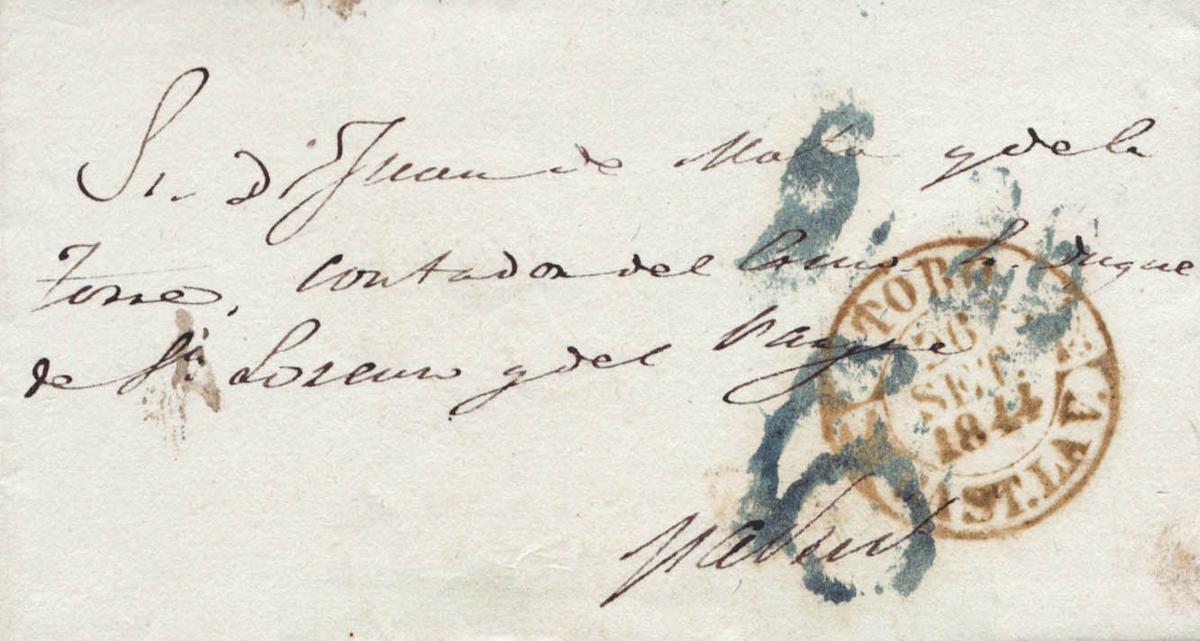 Sr. Dn Juan de Mata y de la
Torre, contador del Excmo. Sr. Duque
de Sn. Lorenzo y del Parque
Madrid
26
SET
1844
CAST. LA V.